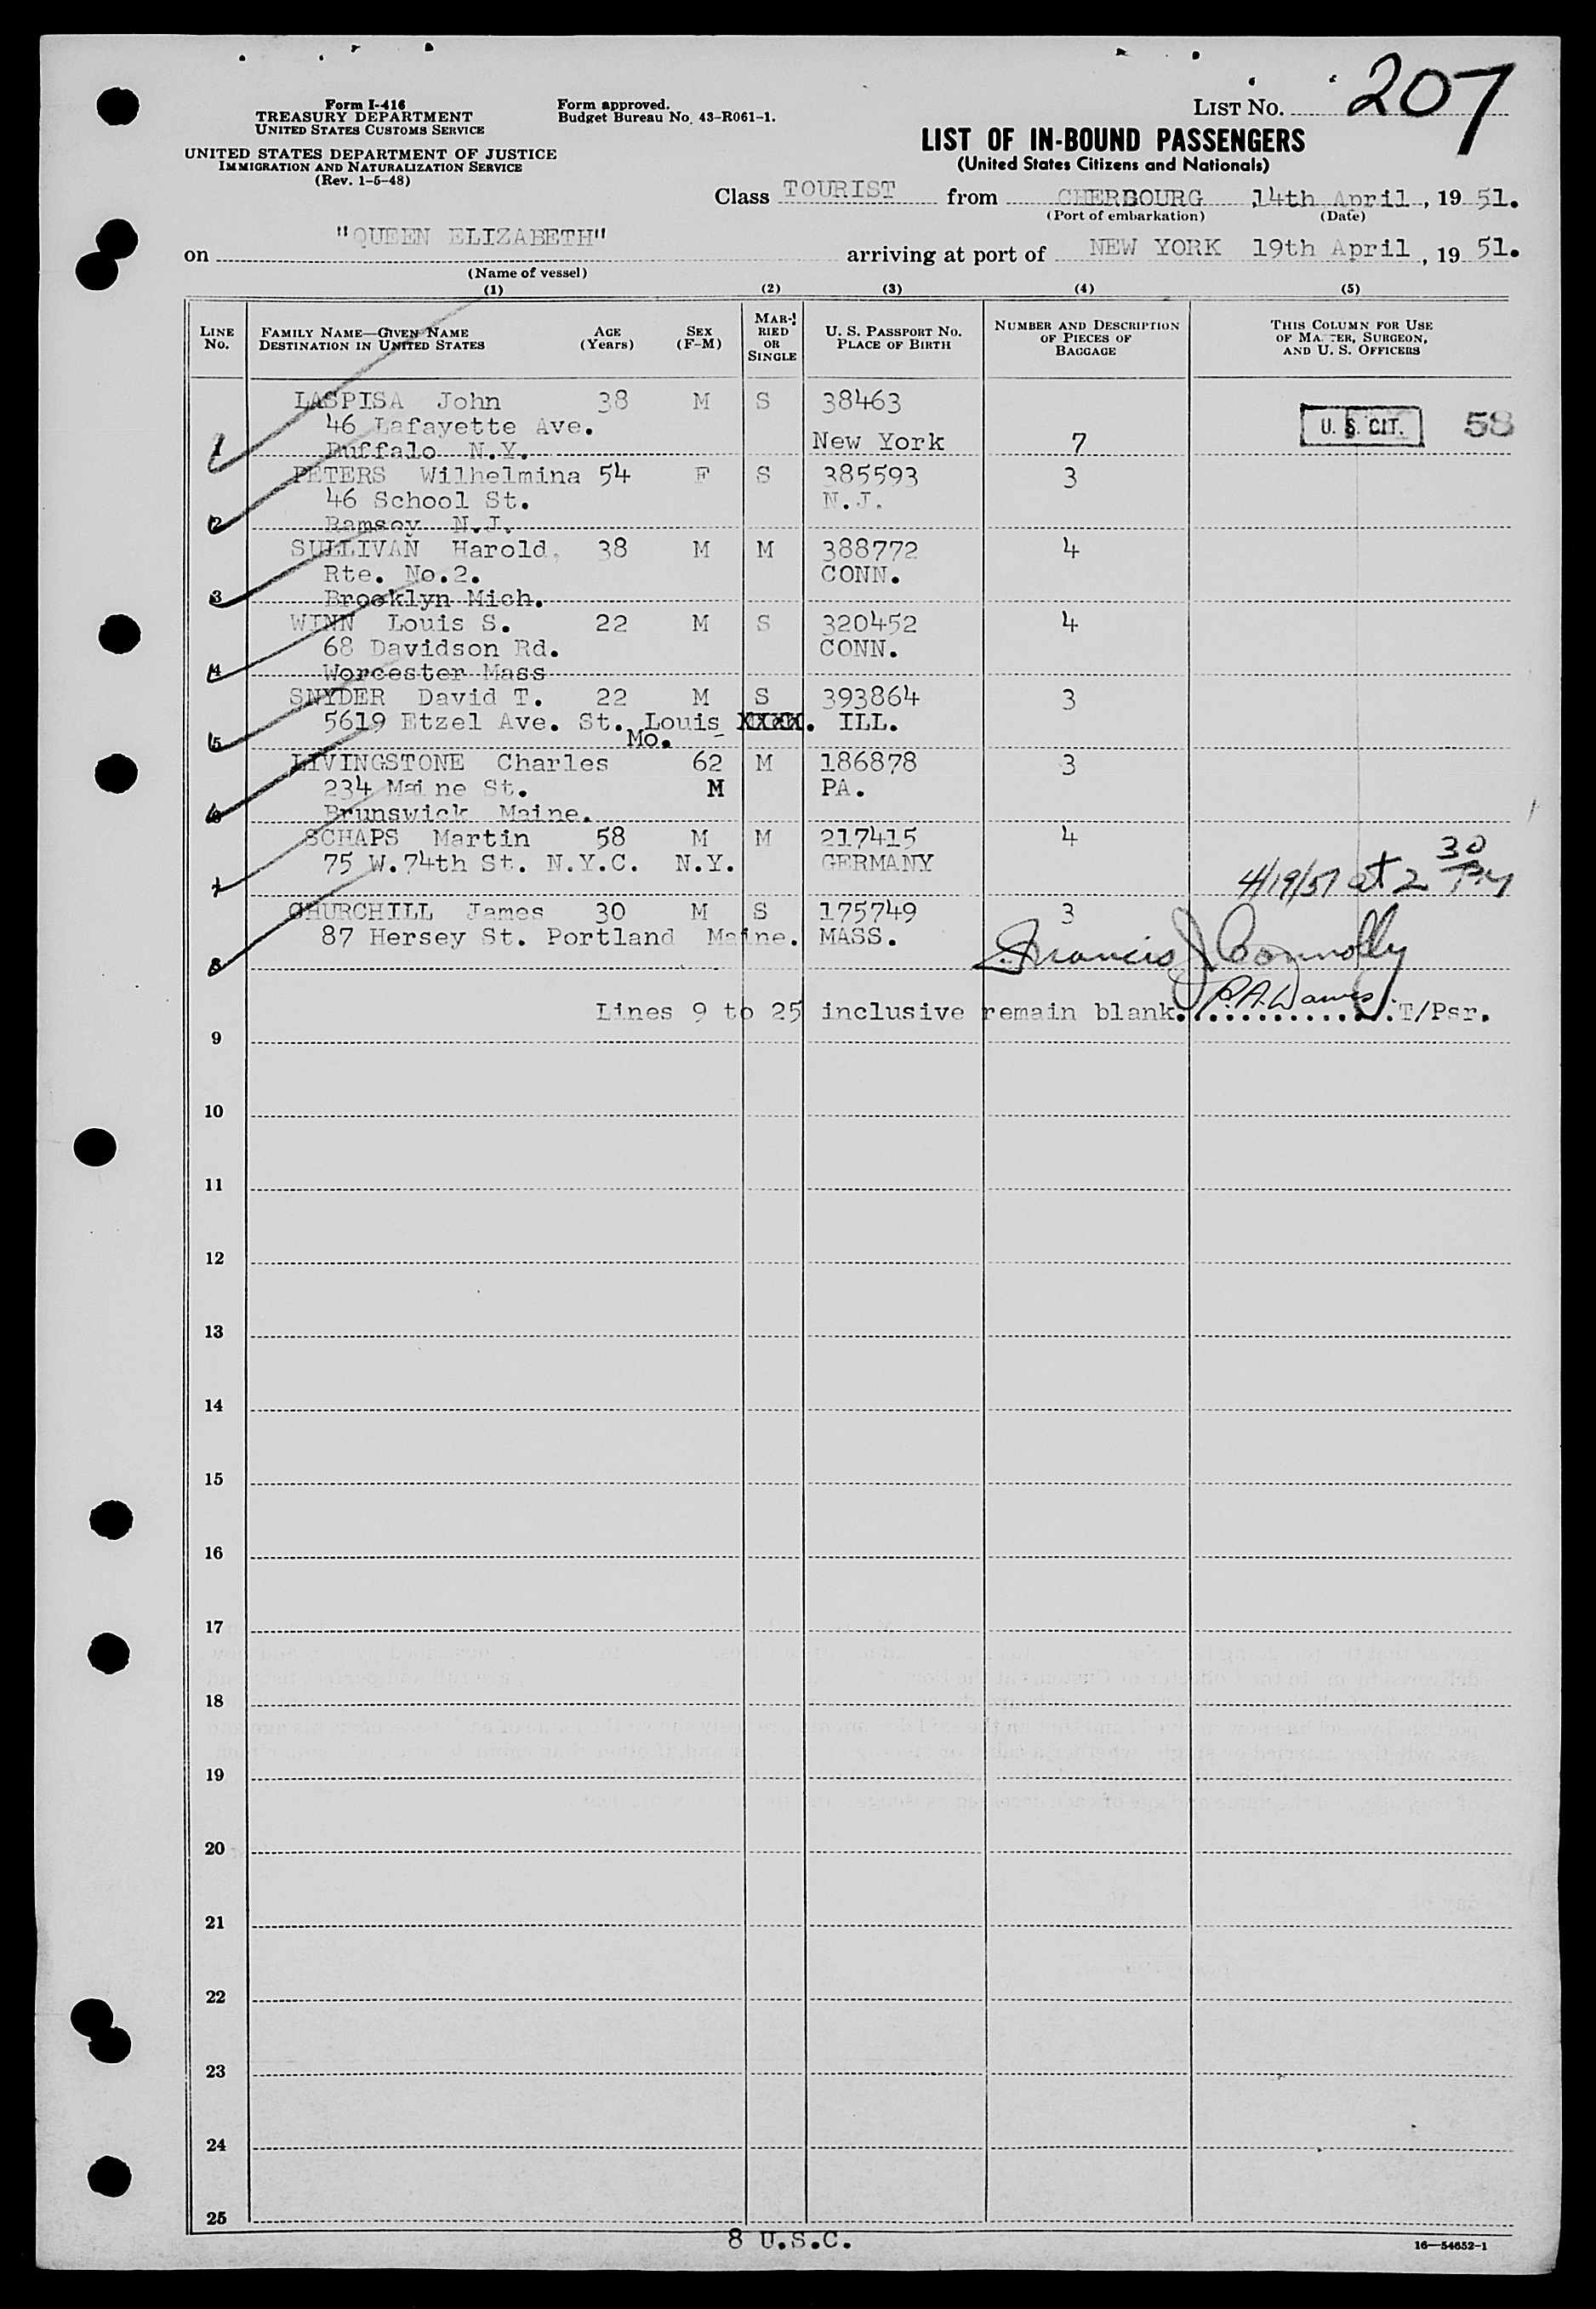 207
Form I-416
TREASURY DEPARTMENT
UNITED STATES CUSTOMS SERVICE
Form approved.
Budget Bureau No. 43-R061-1.
LIST NO.
UNITED STATES DEPARTMENT OF JUSTICE
IMMIGRATION AND NATURALIZATION SERVICE
(Rev. 1-5-48)
LIST OF IN-BOUND PASSENGERS
(United States Citizens and Nationals)
Class TOURIST from CHERBOURG 14th April, 19 51.
(Port of embarkation) (Date)
on "QUEEN ELIZABETH" arriving at port of NEW YORK 19th April, 19 51.
(Name of vessel)
(1) (2) (3) (4) (5)
LINE NO. FAMILY NAME—GIVEN NAME DESTINATION IN UNITED STATES AGE (Years) SEX (F-M) MARRIED OR SINGLE U. S. PASSPORT NO. PLACE OF BIRTH NUMBER AND DESCRIPTION OF PIECES OF BAGGAGE THIS COLUMN FOR USE OF MASTER, SURGEON, AND U. S. OFFICERS
LASPISA John 38 M S 38463
46 Lafayette Ave. U. S. CIT. 58
1 Buffalo N.Y. New York 7
PETERS Wilhelmina 54 F S 385593 3
46 School St. N.J.
2 Ramsey N.J.
SULLIVAN Harold. 38 M M 388772 4
Rte. No.2. CONN.
3 Brooklyn Mich.
WINN Louis S. 22 M S 320452 4
68 Davidson Rd. CONN.
4 Worcester Mass
SNYDER David T. 22 M S 393864 3
5619 Etzel Ave. St. Louis XXXX. ILL.
5 Mo.
LIVINGSTONE Charles 62 M 186878 3
234 Maine St. M PA.
6 Brunswick Maine.
SCHAPS Martin 58 M M 217415 4
75 W.74th St. N.Y.C. N.Y. GERMANY
7 4/19/51 at 2 30 PM
CHURCHILL James 30 M S 175749 3
87 Hersey St. Portland Maine. MASS.
8 Francis J Connolly
P.A. Dawes
Lines 9 to 25 inclusive remain blank. T/Psr.
9
10
11
12
13
14
15
16
17
18
19
20
21
22
23
24
25
8 U.S.C.
16—54652-1